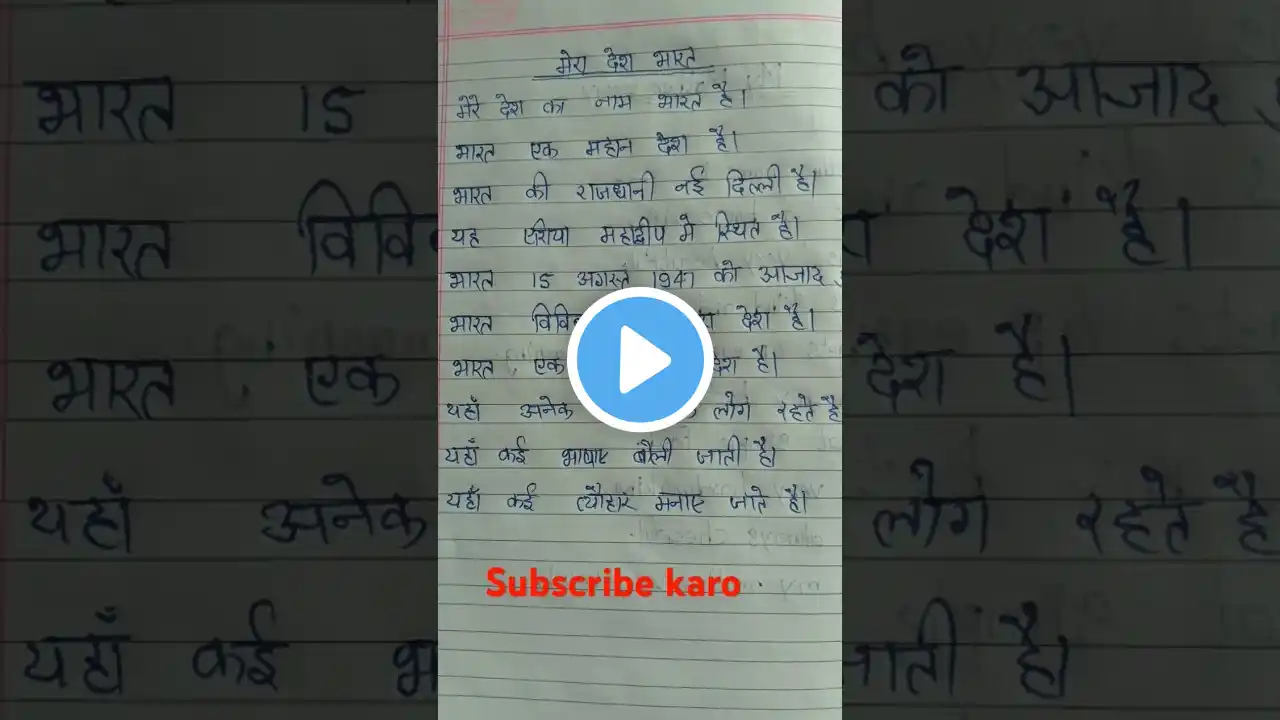 मेरा देश भारत
मेरे देश का नाम भारत है।
भारत एक महान देश है।
भारत की राजधानी नई दिल्ली है।
यह एशिया महाद्वीप मे स्थित है।
भारत 15 अगस्त 1947 को आजाद
भारत देश है।
भारत एक देश है।
यहाँ अनेक लोग रहते है
यहाँ कई भाषाए बोली जाती है।
यहाँ कई त्यौहार मनाए जाते है।
Subscribe karo